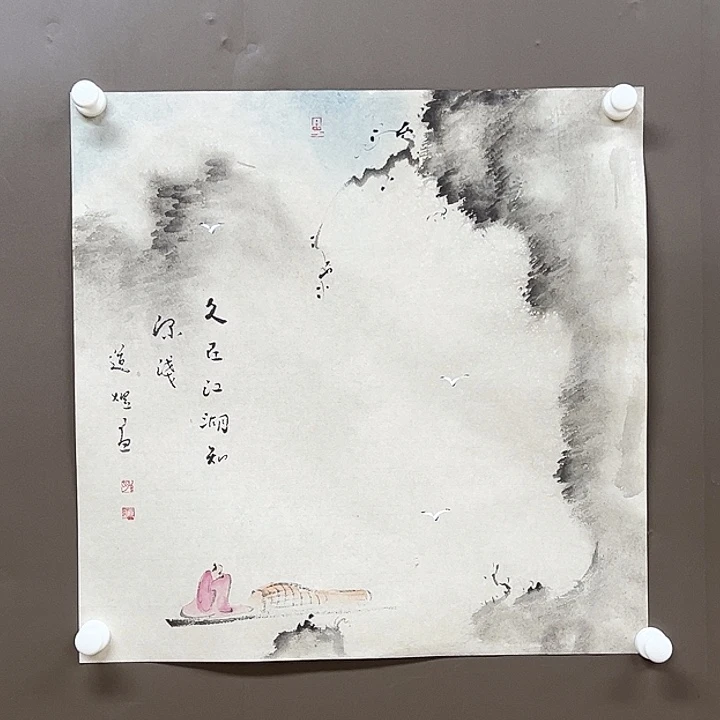 久在江湖知
深淺
道煜畫